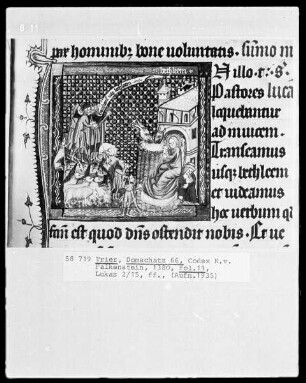 8 11
pax hominibz bone voluntatis. Sumo m
bethleem
Illo. t: s.
Pastores luca
loquebantur
ad inuicem.
Transeamus
usqz bethleem
et uideamus
hoc uerbum qd
fam est quod dns ostendit nobis. Et ue
58 719 Trier, Domschatz 66, Codex K.v.
Falkenstein, 1380, Fol.11,
Lukas 2/15, ff., (Aufn.1935)